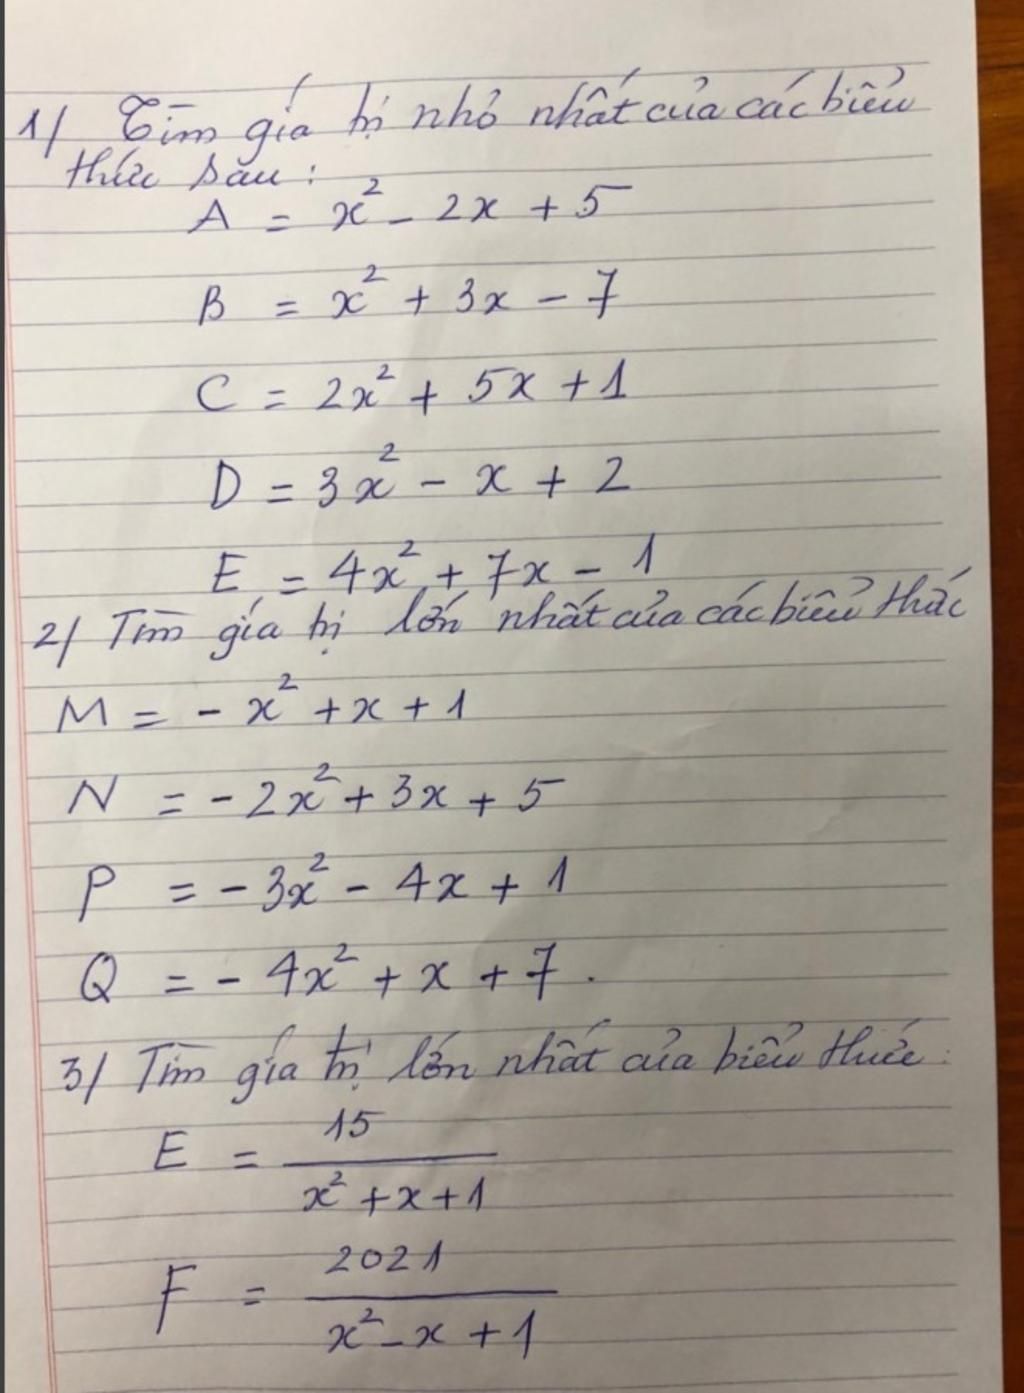 1/ Tìm giá trị nhỏ nhất của các biểu
thức sau:
A = x² - 2x + 5
B = x² + 3x - 7
C = 2x² + 5x + 1
D = 3x² - x + 2
E = 4x² + 7x - 1
2/ Tìm giá trị lớn nhất của các biểu thức
M = - x² + x + 1
N = - 2x² + 3x + 5
P = - 3x² - 4x + 1
Q = - 4x² + x + 7.
3/ Tìm giá trị lớn nhất của biểu thức:
E = 15 / (x² + x + 1)
F = 2021 / (x² - x + 1)